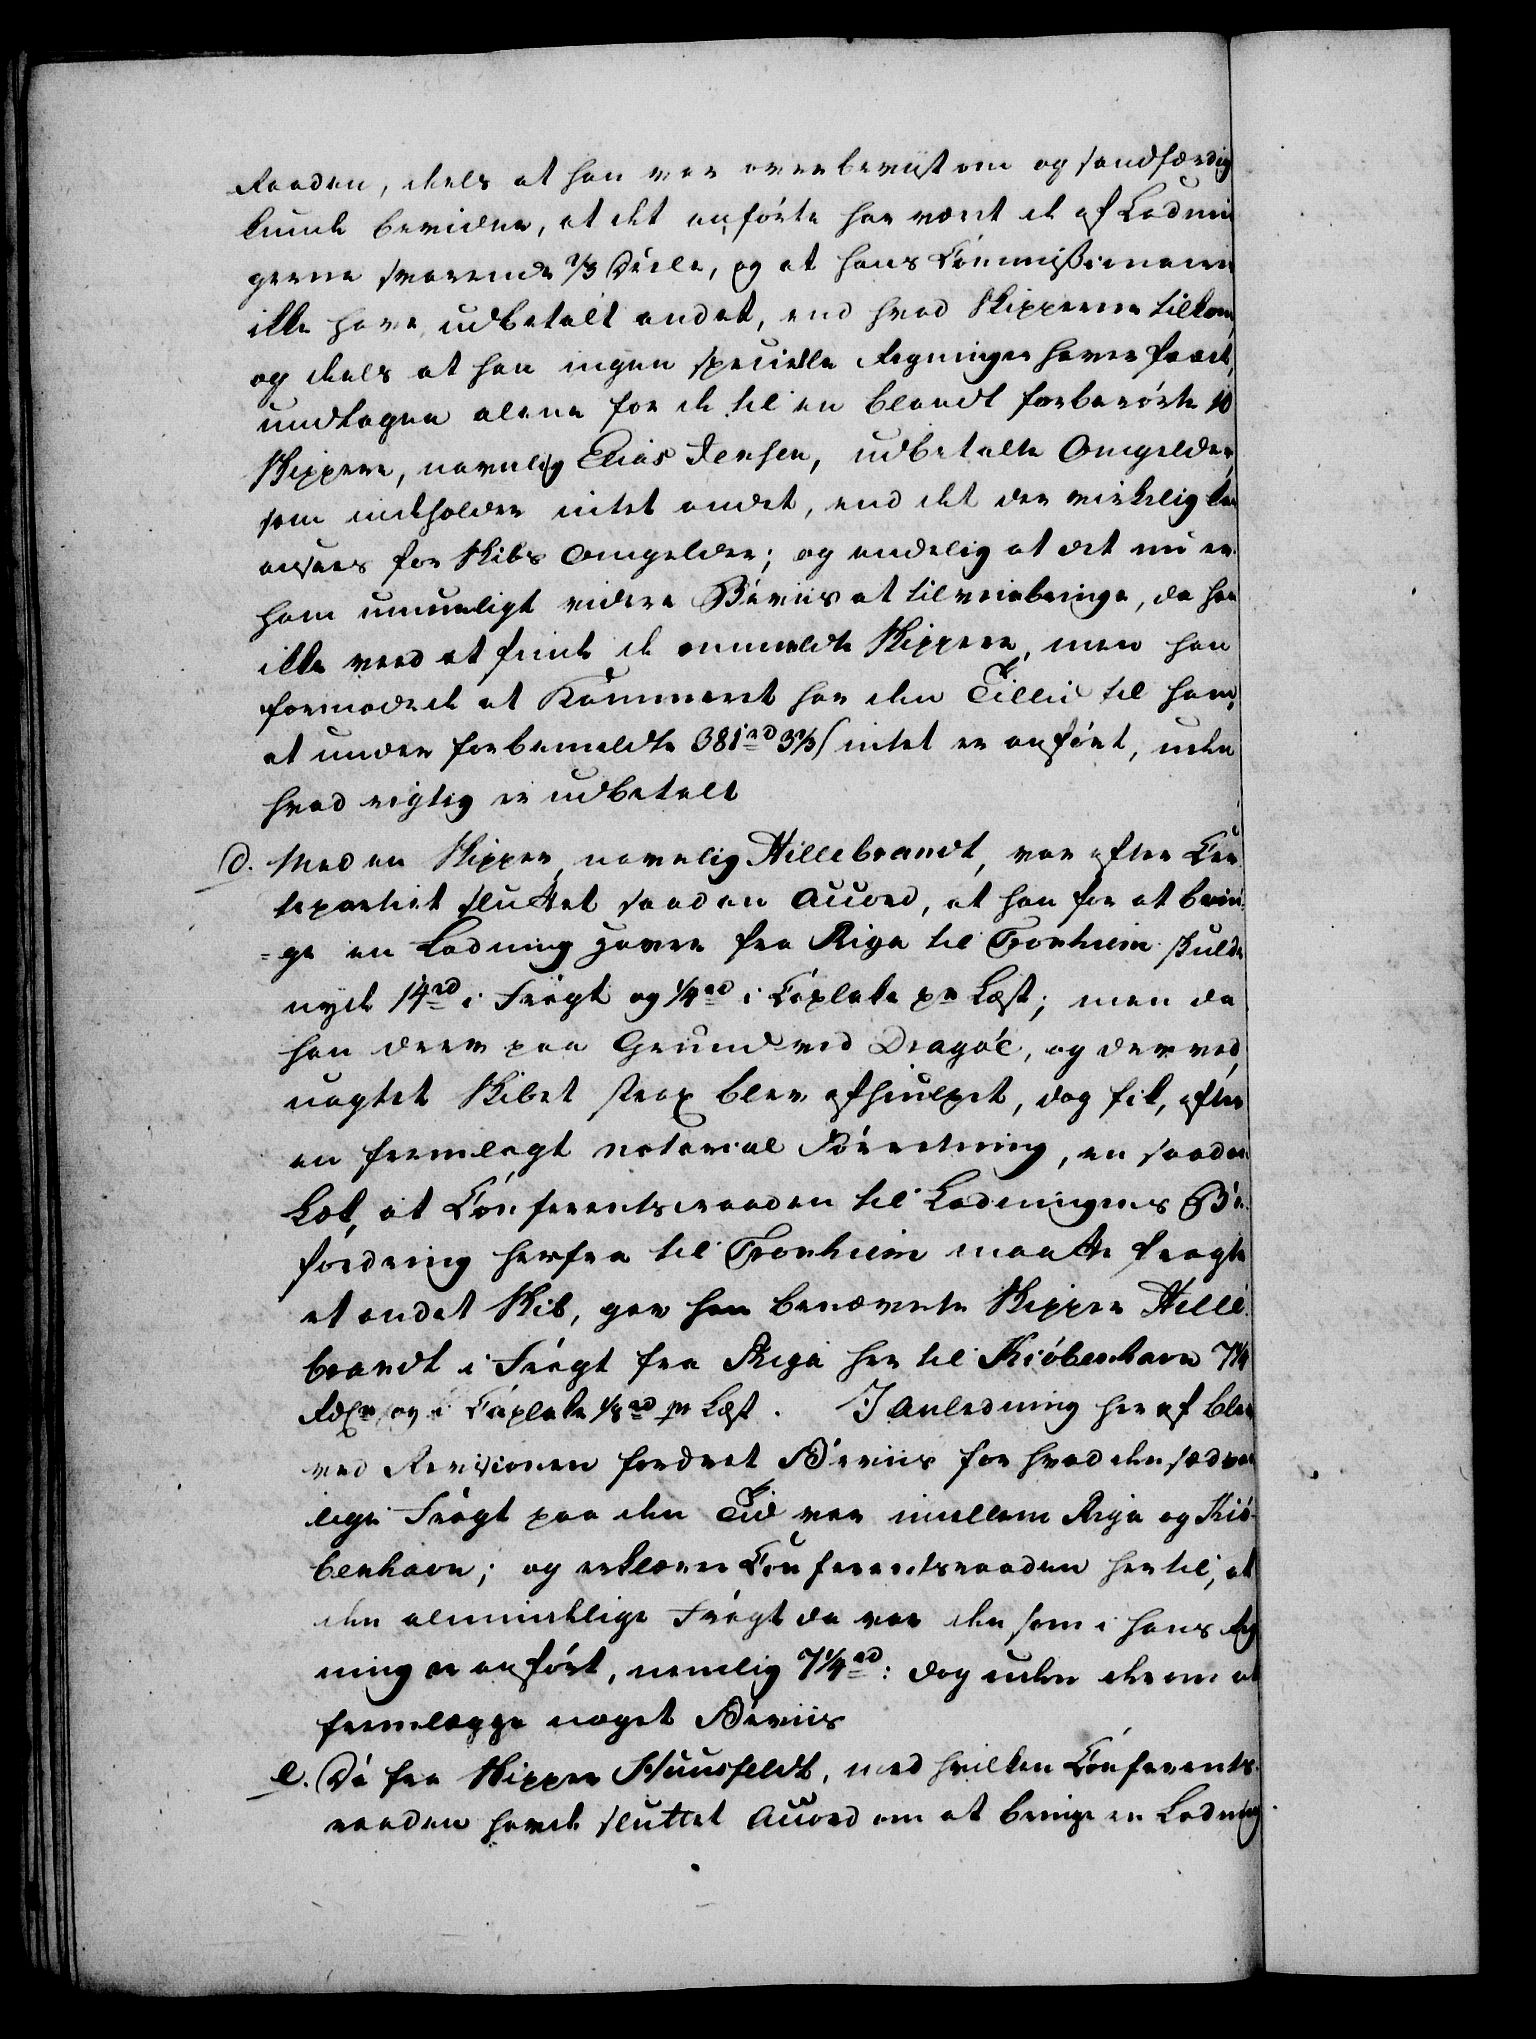 Raaden, deels at han var overbeviist om og sandfærdig
kunde bevidne, at det anførte har været de af Ladnin
gerne svarende 2/3 Deele, og at hans Commissionairer
ikke have udbetalt andet, end hvad Skipperne tilkom,
og deels at han ingen specielle Regninger haver faaet,
undtagen alene for de til en blandt forberørte 10
Skippere, navnlig Elias Jensen, udbetalte Omgelder,
som indeholder intet andet, end det der virkelig kan
ansees for Skibs Omgelder; og endelig at det nu er
ham umueligt videre Beviis at tilveiebringe, da han
ikke veed at finde de anmeldte Skippere, men han
formodede at Kammeret har den Tillid til ham,
at under forbemeldte 381 rd 3 2/3 ſ intet er anført, uden
hvad rigtig er udbetalt
d. Med en Skipper, navnlig Hillebrandt, var efter Cer
tepartiet sluttet saadan Accord, at han for at brin
=ge en Ladning Havre fra Riga til Tronhiem skulde
nyde 14 rd i Fragt og 1/4 rd i Caplake pr Læst; men da
han drev paa Grund ved Dragøe, og derved,
uagtet Skibet strax blev afhiulpet, dog fik, efter
en fremlagt notarial Forretning, en saadan
Læk, at Conferentsraaden til Ladningens Be
fordring herfra til Tronhiem maatte fragte
et andet Skib, gav han benævnte Skipper Hille
brandt i Fragt fra Riga her til Kiøbenhavn 7 1/4
Rdlr og i Caplake 1/8 rd pr Læst. I Anledning heraf blev
ved Revisionen fordret Beviis for hvad den sædvan
lige Fragt paa den Tid var imellem Riga og Kiø
benhavn; og erklærer Conferentsraaden hertil, at
den almindelige Fragt da var den som i hans Reg
ning er anført, nemlig 7 1/4 rd: dog uden derom at
fremlægge noget Beviis
e. Da fra Skipper Huusfeldt, med hvilken Conferents
raaden havde sluttet Accord om at bringe en Ladning